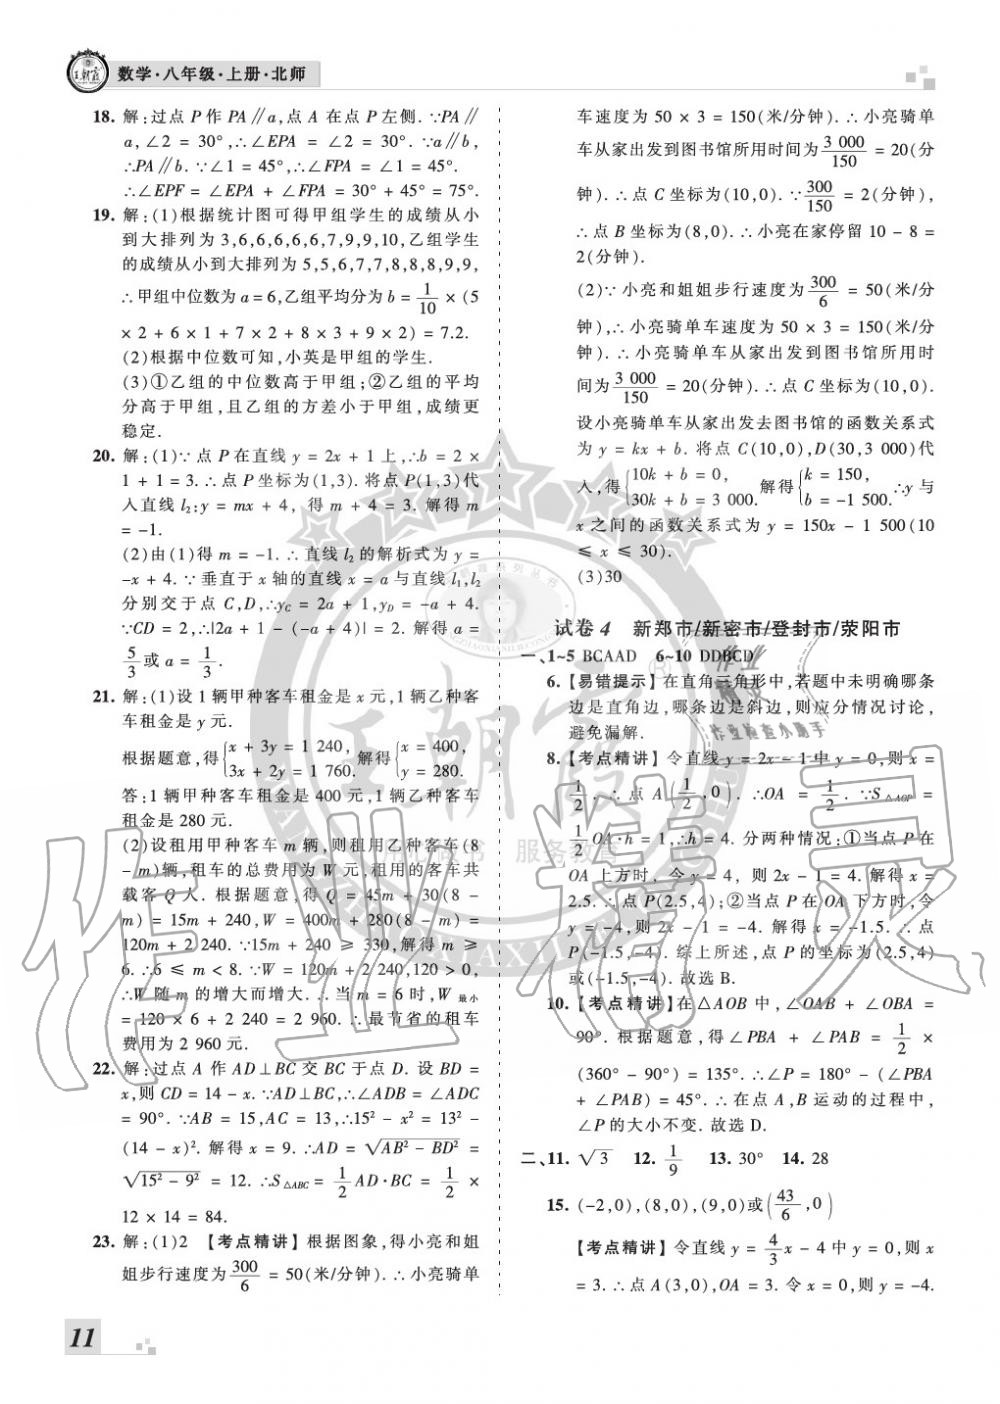 数学·八年级·上册·北师
18. 解:过点 P 作 PA∥a,点 A 在点 P 左侧. ∵PA∥
a,∠2 = 30°,∴∠EPA = ∠2 = 30°. ∵a∥b,
∴PA∥b. ∵∠1 = 45°,∴∠FPA = ∠1 = 45°.
∴∠EPF = ∠EPA + ∠FPA = 30° + 45° = 75°.
19. 解:(1)根据统计图可得甲组学生的成绩从小
到大排列为 3,6,6,6,6,6,7,9,9,10,乙组学生
的成绩从小到大排列为 5,5,6,7,7,8,8,8,9,9,
∴甲组中位数为 a = 6,乙组平均分为 b = 1/10 × (5
× 2 + 6 × 1 + 7 × 2 + 8 × 3 + 9 × 2) = 7.2.
(2)根据中位数可知,小英是甲组的学生.
(3)①乙组的中位数高于甲组;②乙组的平均
分高于甲组,且乙组的方差小于甲组,成绩更
稳定.
20. 解:(1)∵点 P 在直线 y = 2x + 1 上,∴b = 2 ×
1 + 1 = 3. ∴点 P 坐标为(1,3). 将点 P(1,3)代
入直线 l₂:y = mx + 4, 得 m + 4 = 3. 解得 m
= -1.
(2)由(1)得 m = -1. ∴直线 l₂ 的解析式为 y =
-x + 4. ∵垂直于 x 轴的直线 x = a 与直线 l₁,l₂
分别交于点 C,D,∴y_C = 2a + 1,y_D = -a + 4.
∵CD = 2,∴|2a + 1 - (-a + 4)| = 2. 解得 a =
5/3 或 a = 1/3.
21. 解:(1)设 1 辆甲种客车租金是 x 元,1 辆乙种客
车租金是 y 元.
根据题意,得{x + 3y = 1 240, 3x + 2y = 1 760. 解得{x = 400, y = 280.
答:1 辆甲种客车租金是 400 元,1 辆乙种客车
租金是 280 元.
(2)设租用甲种客车 m 辆,则租用乙种客车(8
- m)辆,租车的总费用为 W 元,租用的客车共
载客 Q 人. 根据题意,得 Q = 45m + 30(8 -
m) = 15m + 240,W = 400m + 280(8 - m) =
120m + 2 240. ∵15m + 240 ≥ 330,解得 m ≥
6. ∴6 ≤ m < 8. ∵W = 120m + 2 240,120 > 0,
∴W 随 m 的增大而增大. ∴当 m = 6 时,W最小
= 120 × 6 + 2 240 = 2 960. ∴最节省的租车
费用为 2 960 元.
22. 解:过点 A 作 AD⊥BC 交 BC 于点 D. 设 BD =
x,则 CD = 14 - x. ∵AD⊥BC,∴∠ADB = ∠ADC
= 90°. ∵AB = 15,AC = 13,∴15² - x² = 13² -
(14 - x)². 解得 x = 9. ∴AD = √(AB² - BD²) =
√(15² - 9²) = 12. ∴S△ABC = 1/2 AD·BC = 1/2 ×
12 × 14 = 84.
23. 解:(1)2 【考点精讲】根据图象,得小亮和姐
姐步行速度为 300/6 = 50(米/分钟). ∴小亮骑单
车速度为 50 × 3 = 150(米/分钟). ∴小亮骑单
车从家出发到图书馆所用时间为 3 000/150 = 20(分
钟). ∴点 C 坐标为(10,0). ∵300/150 = 2(分钟),
∴点 B 坐标为(8,0). ∴小亮在家停留 10 - 8 =
2(分钟).
(2)∵小亮和姐姐步行速度为 300/6 = 50(米/分
钟),∴小亮骑单车速度为 50 × 3 = 150(米/分
钟). ∴小亮骑单车从家出发到图书馆所用时
间为 3 000/150 = 20(分钟). ∴点 C 坐标为(10,0).
设小亮骑单车从家出发去图书馆的函数关系式
为 y = kx + b. 将点 C(10,0),D(30,3 000)代
入,得{10k + b = 0, 30k + b = 3 000. 解得{k = 150, b = -1 500. ∴y 与
x 之间的函数关系式为 y = 150x - 1 500(10
≤ x ≤ 30).
(3)30
试卷 4 新郑市/新密市/登封市/荥阳市
一、1~5 BCAAD 6~10 DDBCD
6.【易错提示】在直角三角形中,若题中未明确哪条
边是直角边,哪条边是斜边,则应分情况讨论,
避免漏解.
8.【考点精讲】令直线 y = 2x - 1 中 y = 0,则 x =
1/2. ∴点 A(1/2,0). ∴OA = 1/2. ∵S△AOP =
1/2 OA·h = 1,∴h = 4. 分两种情况:①当点 P 在
OA 上方时, 令 y = 4, 则 2x - 1 = 4. 解得 x =
2.5. ∴点 P(2.5,4);②当点 P 在 OA 下方时,令
y = -4,则 2x - 1 = -4. 解得 x = -1.5. ∴点
P(-1.5,-4). 综上所述,点 P 的坐标为(2.5,4)
或(-1.5,-4). 故选 B.
10.【考点精讲】在△AOB 中,∠OAB + ∠OBA =
90°. 根据题意,得∠PBA + ∠PAB = 1/2 ×
(360° - 90°) = 135°. ∴∠P = 180° - (∠PBA
+ ∠PAB) = 45°. ∴在点 A,B 运动的过程中,
∠P 的大小不变. 故选 D.
二、11. √3 12. 1/9 13. 30° 14. 28
15. (-2,0),(8,0),(9,0)或(43/6,0)
【考点精讲】令直线 y = 4/3 x - 4 中 y = 0,则 x
= 3. ∴点 A(3,0),OA = 3. 令 x = 0,则 y = -4.
11
王朝霞
作业精灵
作业检查小助手